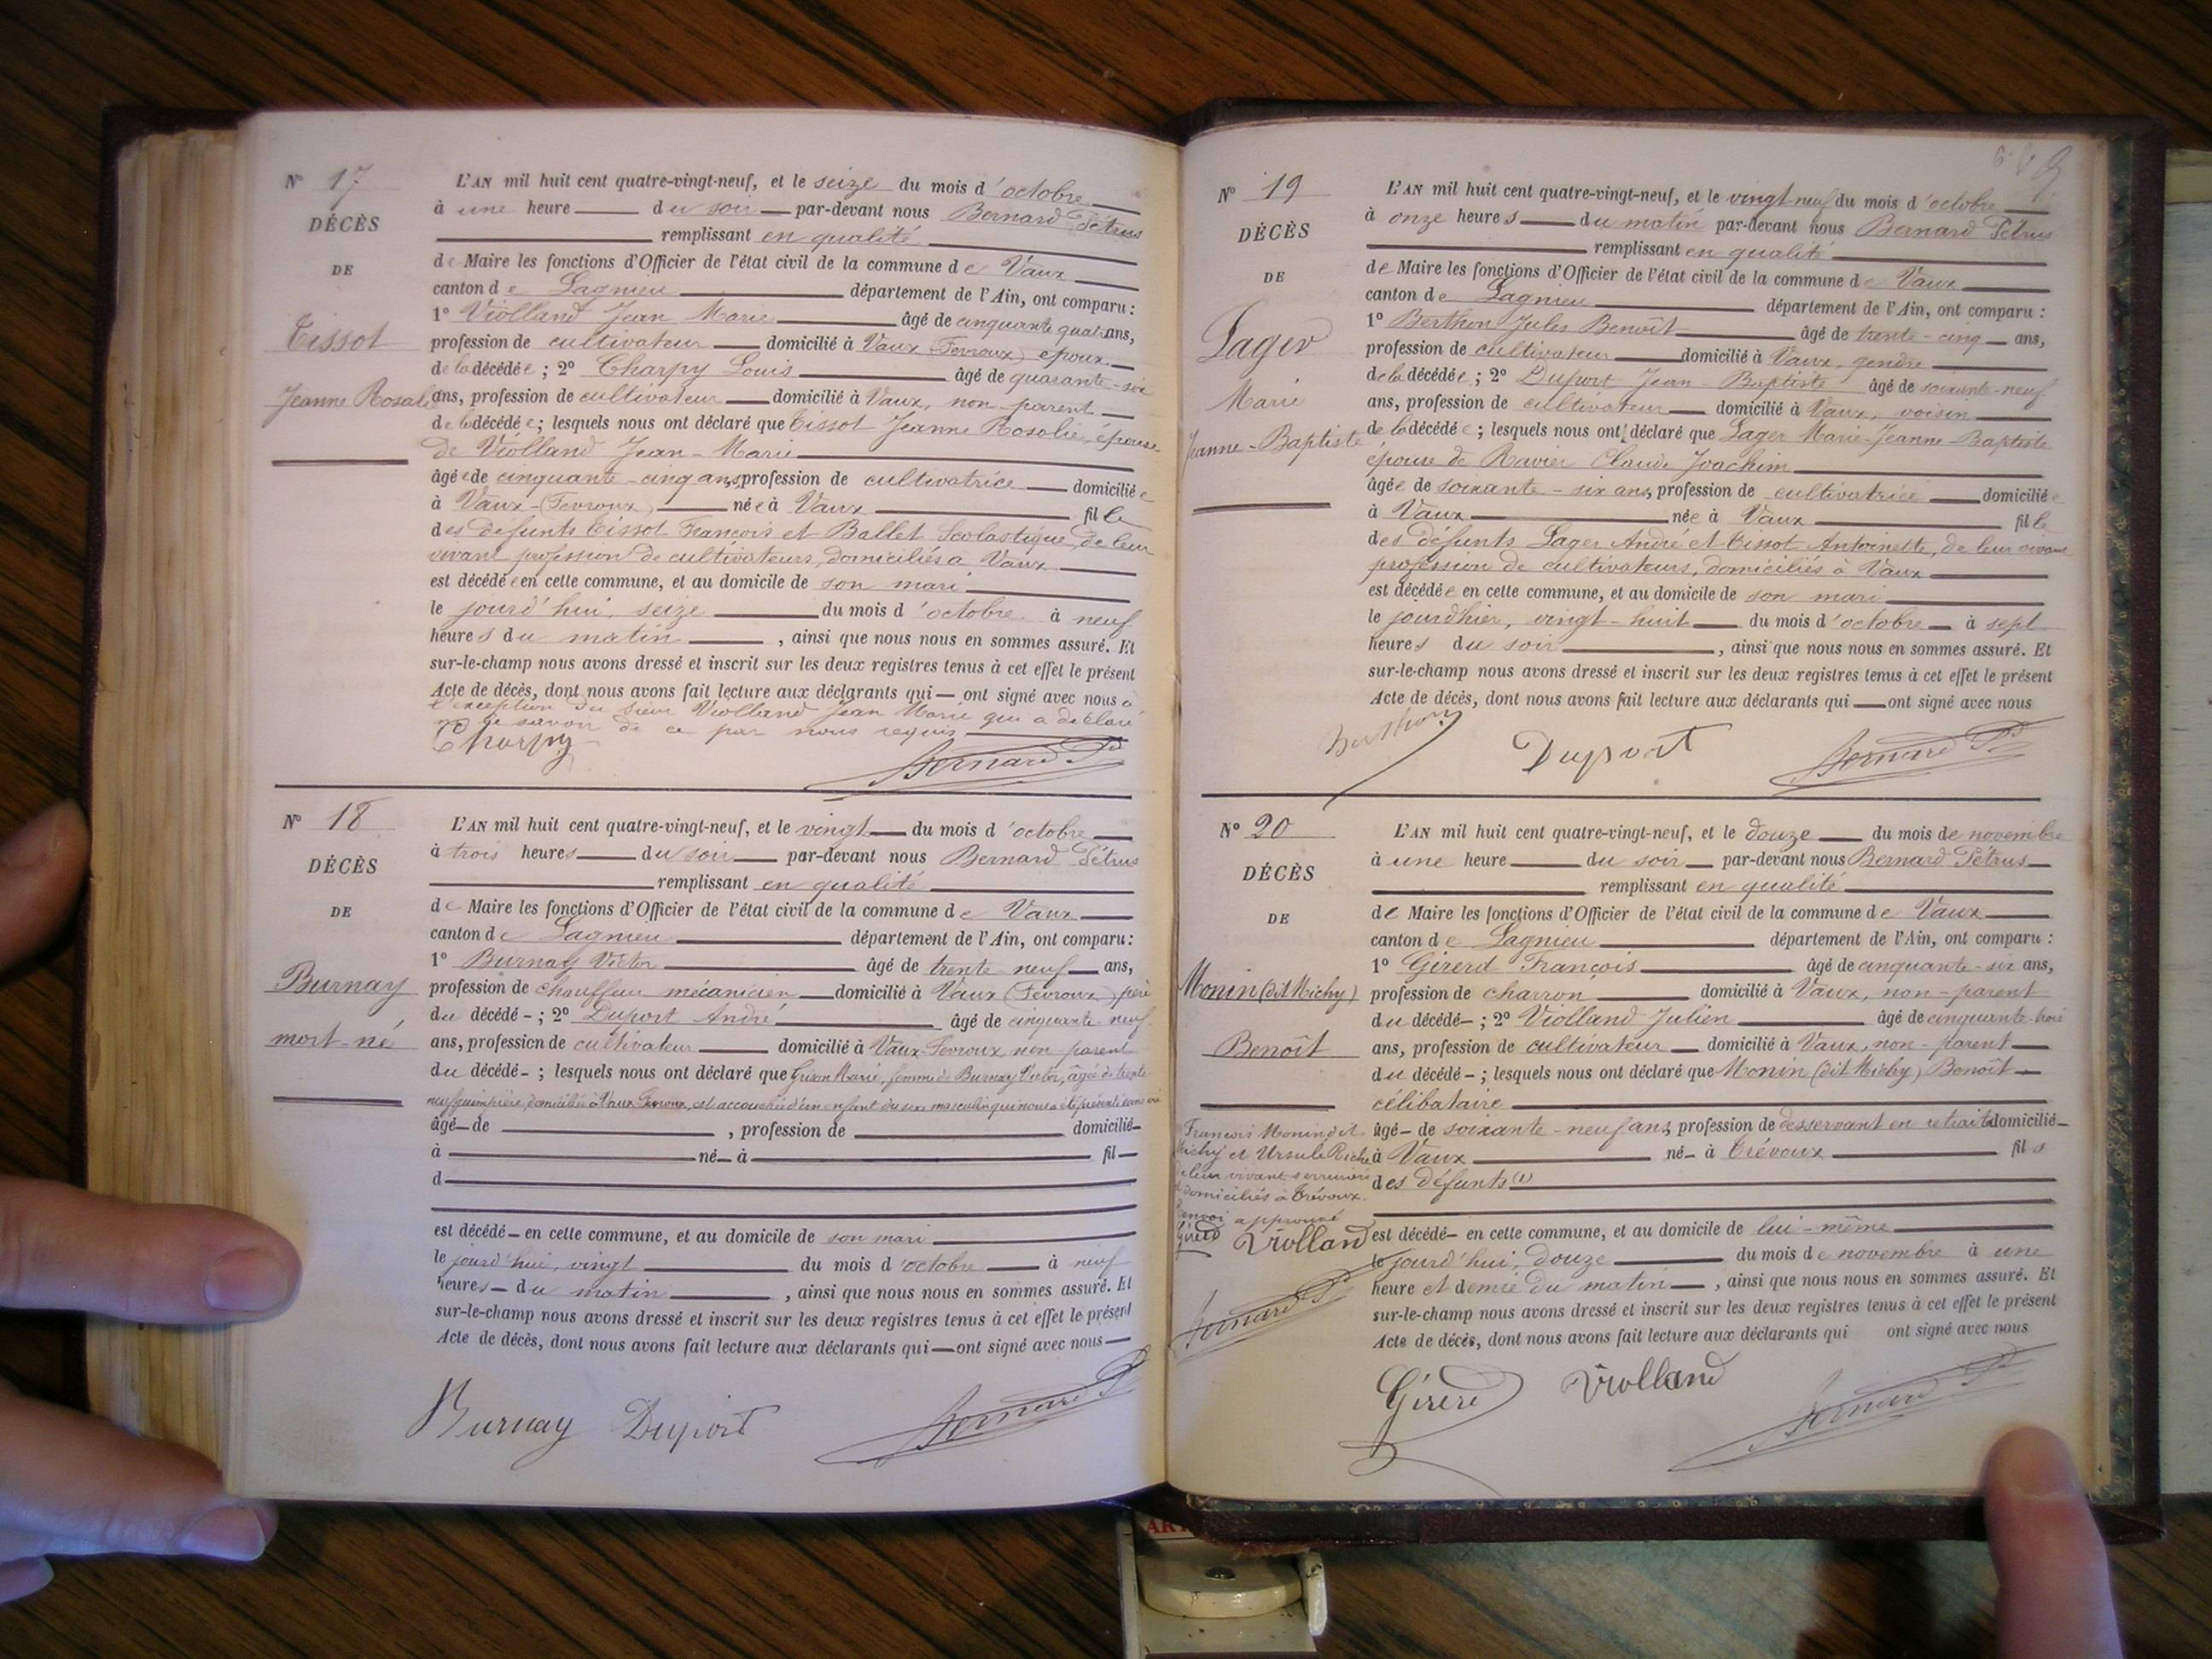 N° 17
DÉCÈS
DE
Tissot
Jeanne Rosalie
L'AN mil huit cent quatre-vingt-neuf, et le seize du mois d'octobre
à une heure du soir par-devant nous Bernard Pétrus
remplissant en qualité
de Maire les fonctions d'Officier de l'état civil de la commune de Vaux
canton de Lagnieu département de l'Ain, ont comparu :
1° Violland Jean Marie âgé de cinquante quatre ans,
profession de cultivateur domicilié à Vaux (Fevroux) époux
de la décédée ; 2° Charpy Louis âgé de quarante-six
ans, profession de cultivateur domicilié à Vaux, non parent
de la décédée ; lesquels nous ont déclaré que Tissot Jeanne Rosalie, épouse
de Violland Jean-Marie
âgée de cinquante-cinq ans, profession de cultivatrice domiciliée
à Vaux-(Fevroux) née à Vaux fille
des défunts Tissot François et Ballet Scolastique, de leur
vivant profession de cultivateurs, domiciliés à Vaux
est décédée en cette commune, et au domicile de son mari
le jourd'hui, seize du mois d'octobre à neuf
heures du matin , ainsi que nous nous en sommes assuré. Et
sur-le-champ nous avons dressé et inscrit sur les deux registres tenus à cet effet le présent
Acte de décès, dont nous avons fait lecture aux déclarants qui — ont signé avec nous à
l'exception du sieur Violland Jean Marie qui a déclaré
ne le savoir de ce par nous requis
Charpy Bernard P
N° 18
DÉCÈS
DE
Burnay
mort-né
L'AN mil huit cent quatre-vingt-neuf, et le vingt du mois d'octobre
à trois heures du soir par-devant nous Bernard Pétrus
remplissant en qualité
de Maire les fonctions d'Officier de l'état civil de la commune de Vaux
canton de Lagnieu département de l'Ain, ont comparu :
1° Burnay Victor âgé de trente-neuf ans,
profession de chauffeur mécanicien domicilié à Vaux (Fevroux) père
du décédé - ; 2° Duport André âgé de cinquante-neuf
ans, profession de cultivateur domicilié à Vaux-Fevroux, non parent
du décédé - ; lesquels nous ont déclaré que Grison Marie, femme de Burnay Victor, âgée de trente-
neuf domiciliée à Vaux Fevroux, est accouchée d'un enfant du sexe masculin qui nous a été présenté sans vie
âgé — de , profession de domicilié —
à né — à fil —
d
est décédé — en cette commune, et au domicile de son mari
le jourd'hui, vingt du mois d'octobre à neuf
heures — du matin , ainsi que nous nous en sommes assuré. Et
sur-le-champ nous avons dressé et inscrit sur les deux registres tenus à cet effet le présent
Acte de décès, dont nous avons fait lecture aux déclarants qui — ont signé avec nous —
Burnay Duport Bernard P
N° 19
DÉCÈS
DE
Lager
Marie
Jeanne-Baptiste
L'AN mil huit cent quatre-vingt-neuf, et le vingt-neuf du mois d'octobre
à onze heures du matin par-devant nous Bernard Pétrus
remplissant en qualité
de Maire les fonctions d'Officier de l'état civil de la commune de Vaux
canton de Lagnieu département de l'Ain, ont comparu :
1° Berthon Jules Benoît âgé de trente-cinq ans,
profession de cultivateur domicilié à Vaux, gendre
de la décédée ; 2° Duport Jean-Baptiste âgé de soixante-neuf
ans, profession de cultivateur domicilié à Vaux, voisin
de la décédée ; lesquels nous ont déclaré que Lager Marie-Jeanne-Baptiste
épouse de Ravier Claude Joachim
âgée de soixante-six ans, profession de cultivatrice domiciliée
à Vaux née à Vaux fille
des défunts Lager André et Tissot Antoinette, de leur vivant
profession de cultivateurs, domiciliés à Vaux
est décédée en cette commune, et au domicile de son mari
le jourd'hier, vingt-huit du mois d'octobre à sept
heures du soir , ainsi que nous nous en sommes assuré. Et
sur-le-champ nous avons dressé et inscrit sur les deux registres tenus à cet effet le présent
Acte de décès, dont nous avons fait lecture aux déclarants qui — ont signé avec nous
Berthon Duport Bernard P
N° 20
DÉCÈS
DE
Monin (dit Michy)
Benoît
L'AN mil huit cent quatre-vingt-neuf, et le douze du mois de novembre
à une heure du soir par-devant nous Bernard Pétrus
remplissant en qualité
de Maire les fonctions d'Officier de l'état civil de la commune de Vaux
canton de Lagnieu département de l'Ain, ont comparu :
1° Girerd François âgé de cinquante-six ans,
profession de charron domicilié à Vaux, non-parent
du décédé — ; 2° Violland Julien âgé de cinquante-trois
ans, profession de cultivateur domicilié à Vaux, non-parent
du décédé — ; lesquels nous ont déclaré que Monin (dit Michy) Benoît
célibataire
âgé — de soixante-neuf ans, profession de desservant en retraite domicilié —
à Vaux né — à Trévoux fils
des défunts (1)
est décédé — en cette commune, et au domicile de lui-même
le jourd'hui, douze du mois de novembre à une
heure et demie du matin , ainsi que nous nous en sommes assuré. Et
sur-le-champ nous avons dressé et inscrit sur les deux registres tenus à cet effet le présent
Acte de décès, dont nous avons fait lecture aux déclarants qui ont signé avec nous
François Monin dit
Michy et Ursule Riche
de leur vivant serruriers
domiciliés à Trévoux.
Renvoi approuvé
Girerd Violland
Bernard P
Girerd Violland Bernard P